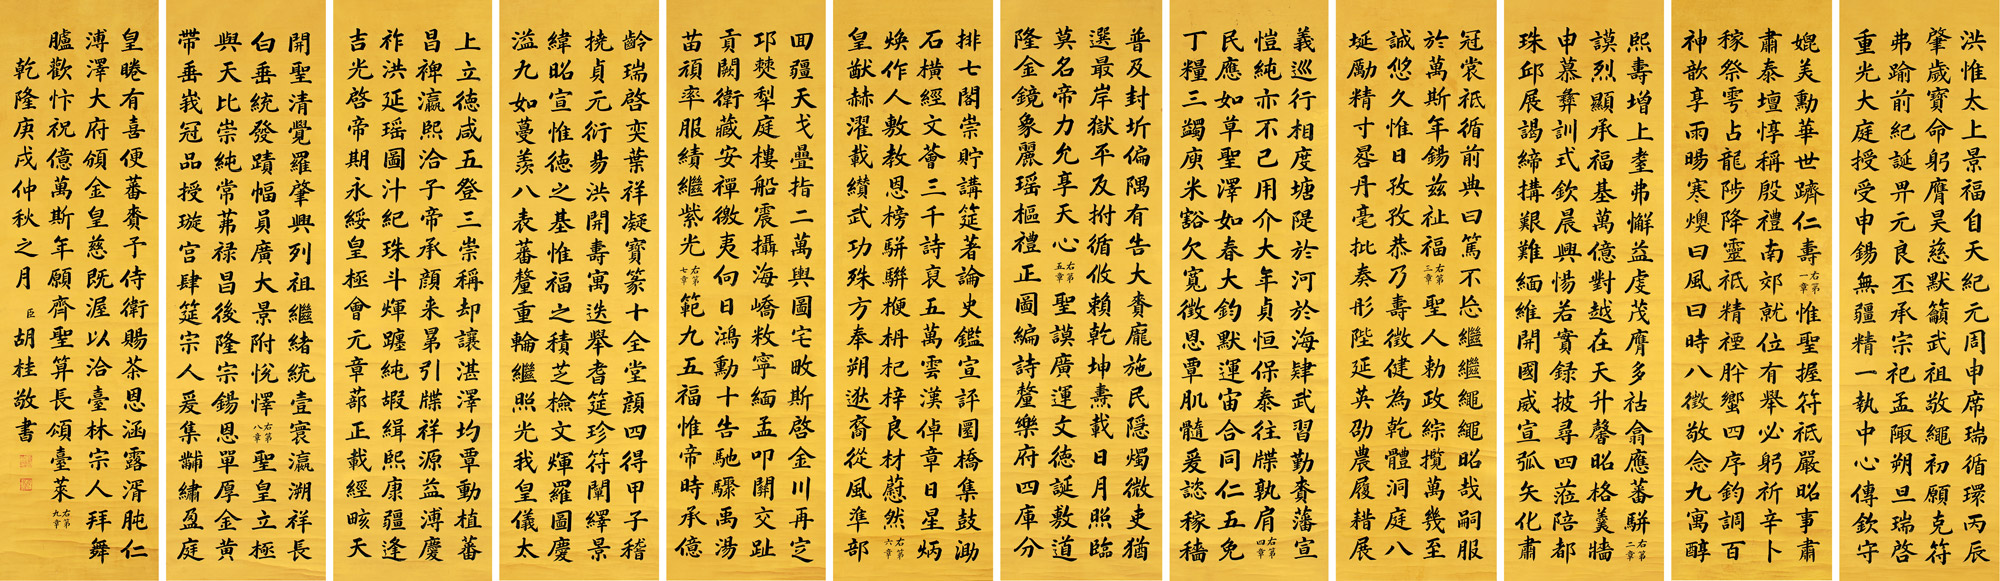 洪惟太上景福自天紀元周申席瑞循環丙辰
肇歲寶命躬膺昊慈默籲武祖敬繩初願克符
弗踰前紀誕畀元良丕承宗祀孟陬朔旦瑞啓
重光大庭授受申錫無疆精一執中心傳欽守
媲美勳華世躋仁壽右第一章惟聖握符祗嚴昭事肅
肅泰壇惇稱殷禮南郊就位有舉必躬祈辛卜
稼祭雩占龍陟降靈祇精禋肸蠁四序鈞調百
神歆享雨暘寒燠曰風曰時八徵敬念九寓醇
熙壽增上耋弗懈益虔茂膺多祜翕應蕃駢右第二章
謨烈顯承福基萬億對越在天升馨昭格羹牆
申慕彝訓式欽晨興惕若實録披尋四蒞陪都
珠邱展謁締搆艱難緬維開國威宣弧矢化肅
冠裳祗循前典曰篤不忘繼繼繩繩昭哉嗣服
於萬斯年錫茲祉福右第三章聖人勅政綜攬萬幾至
誠悠久惟日孜孜恭乃壽徵健為乾體洞庭八
埏勵精寸晷丹毫批奏彤陛延英劭農履耤展
義巡行相度塘隄於河於海肆武習勤賚藩宣
愷純亦不已用介大年貞恒保泰往牒孰肩右第四章
民應如草聖澤如春大鈞默運宙合同仁五免
丁糧三蠲庾米豁欠寬徵恩覃肌髓爰諮稼穡
普及封圻偏隅有告大賚龎施民隱燭微吏猶
選最岸獄平反拊循攸賴乾坤燾載日月照臨
莫名帝力允享天心右第五章聖謨廣運文德誕敷道
隆金鏡象麗瑶樞禮正圖編詩釐樂府四庫分
排七閣崇貯講筵著論史鑑宣評圜橋集鼓泐
石橫經文薈三千詩裒五萬雲漢倬章日星炳
煥作人敷教恩榜駢聨楩枬杞梓良材蔚然右第六章
皇猷赫濯載纘武功殊方奉朔逖裔從風準部
回疆天戈疊指二萬輿圖宅畋斯啓金川再定
邛僰犁庭樓船震攝海嶠敉寧緬孟叩關交趾
貢闕衛藏安禪徼夷向日鴻勳十告馳驟禹湯
苗頑率服績繼紫光右第七章範九五福惟帝時承億
齡瑞啓奕葉祥凝寶篆十全堂顔四得甲子稽
撓貞元衍易洪開壽寓迭舉耆筵珍符闡繹景
緯昭宣惟德之基惟福之積芝檢文煇羅圖慶
溢九如蔓羡八表蕃釐重輪繼照光我皇儀太
上立德咸五登三崇稱却讓湛澤均覃動植蕃
昌裨瀛熙洽子帝承顔来晜引牒祥源益溥慶
祚洪延瑶圖汁紀珠斗煇躔純嘏緝熙康疆逢
吉光啓帝期永綏皇極會元章蔀正載經畡天
開聖清覺羅肇興列祖繼緒統壹寰瀛溯祥長
白垂統發蹟幅員廣大景附悅懌右第八章聖皇立極
與天比崇純常茀禄昌後隆宗錫恩單厚金黃
帶垂峩冠品授璇宫肆筵宗人爰集黼繡盈庭
皇睠有喜便蕃賚予侍衛賜茶恩涵露湑肫仁
溥澤大府頒金皇慈既渥以洽臺林宗人拜舞
臚歡忭祝億萬斯年願齊聖算長頌臺萊右第九章
乾隆庚戌仲秋之月 臣胡桂敬書